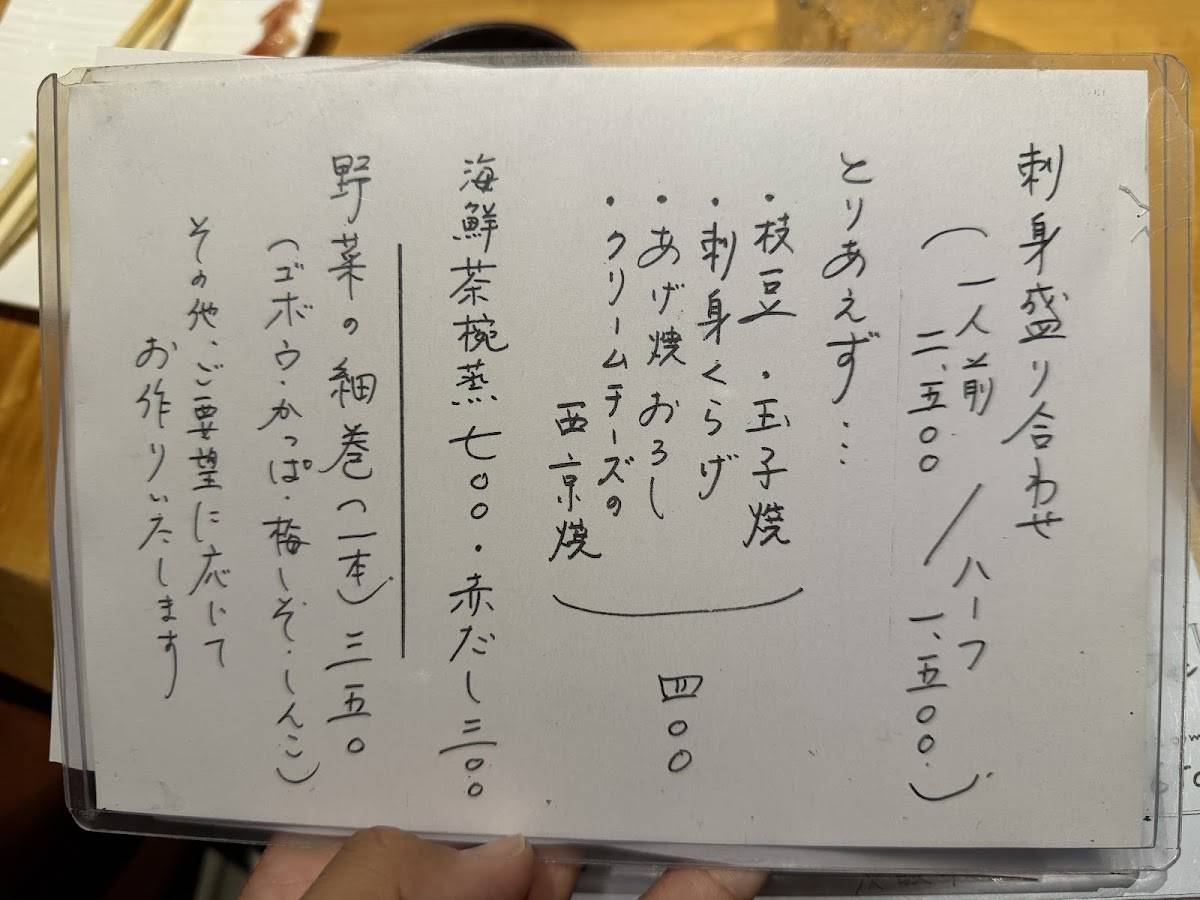 刺身盛り合わせ
(一人前 / ハーフ
二、五〇〇 一、五〇〇)
とりあえず…
・枝豆・玉子焼
・刺身くらげ
・あげ焼おろし
・クリームチーズの
西京焼
四〇〇
海鮮茶椀蒸 七〇〇・赤だし 三〇〇
野菜の細巻(一本) 三五〇
(ゴボウ・かっぱ・梅しそ・しんこ)
その他、ご要望に応じて
お作りいたします